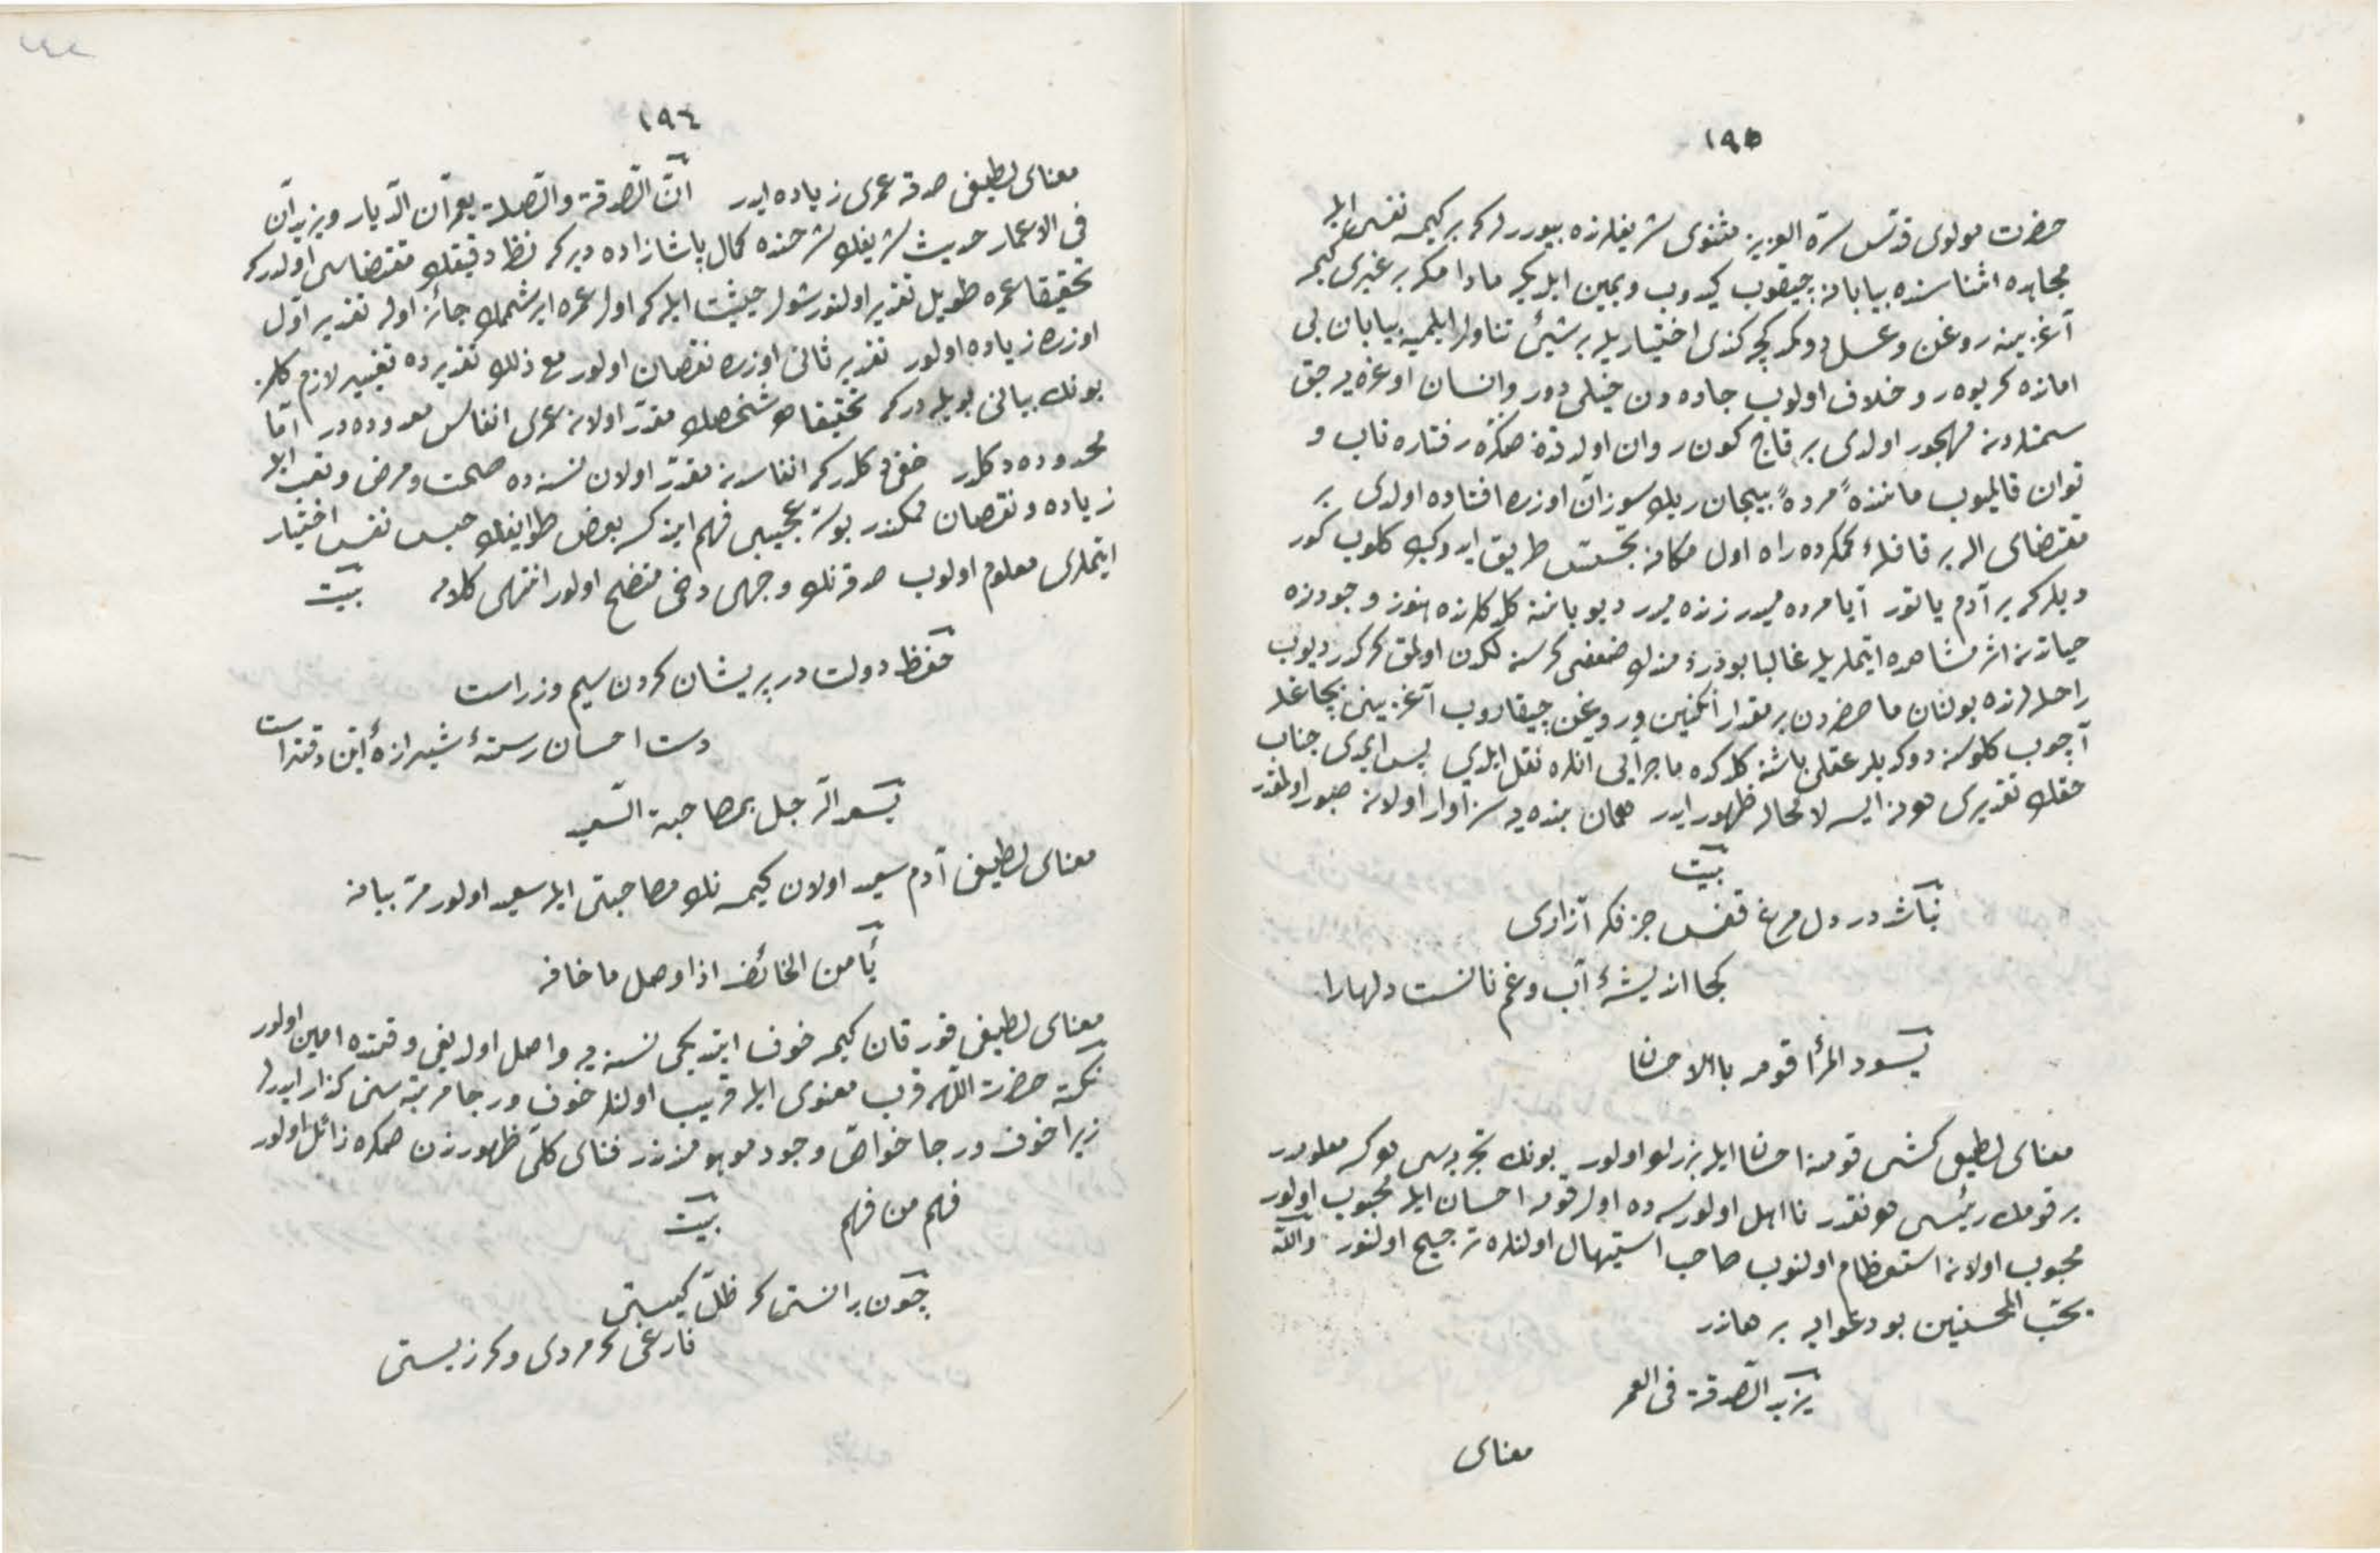 ١٩٥
حضرت مولوی قدّس سرّه العزیز مثنوی شریفلرنده بیوررلرکه برکیمسه نفسی ایله
مجاهده اثناسنده بیابانه چیقوب کیدوب ویمین ایلدیکه مادامکه بر غیری کیمسه
آغزیمه روغن وعسل دوکمدکچه کندی اختیاریله برشیئی تناول ایلمیه بیابان بی
امانده کربوه رو خلاف اولوب جاده دن خیلی دور وانسان اوغره یه جق
سمتلردنه مهجور اولدی برقاچ کون روان اولدقدنصکره رفتاره تاب و
توان قالمیوب ماننده مرده بیجان ریك سوزان اوزره افتاده اولدی بر
مقتضای الهی برقافلۀ کمکرده راه اول مکانه تجسّس طریق ایدرك کلوب کور
دیلرکه برآدم یاتور آیا مرده میدر زنده میدر دیو یاننه کلدکلرنده هنوز وجودنده
حیاتدنه اثر مشاهده ایتملریله غالبا بو ضعفی کرسنه لکدن اولمق کرکدر دیوب
راحله لرنده بولنان ماحضردن بر مقدار انکبین وروغن چیقاروب آغزینی بچاغله
آچوب کلوسنه دوکدیلر عقلی باشنه کلدکده ماجرایی انلره نقل ایلدی پس ایمدی جناب
حقك تقدیری هرنه ایسه لامحاله ظهور ایدر همان بنده یه سزاوار اولانه صبور اولمقدر
بیت
نباشد در دل مرغ قفس جز فکر آزادی
کجا اندیشۀ آب وغم نانست دلهارا
یسود المرأ قومه باالاحسان
معنای لطیفی کشی قومنه احسان ایله بزرلو اولور بونك تجربه سی هرکسه معلومدر
بر قومك رئیسی هرنقدر نااهل اولورسه ده اول قومه احسان ایله محبوب اولور
محبوب اولانه استعظام اولنوب صاحب استیهال اولنلره ترجیح اولنور واللّه
یحبّ المحسنین بو دعوایه برهاندر
یزید الصّدقة فی العمر
معنای
١٩٦
معنای لطیفی صدقه عمری زیاده ایدر انّ الصّدقة والصّلة یعمّران الدّیار ویزیدان
فی الاعمار حدیث شریفك شرحنده کمال پاشازاده دیرکه نظر دقیقك مقتضاسی اولدرکه
تحقیقا عمره طویل تقدیر اولنور شول حیثیت ایله که اول عمره ایرشمك جائز اوله تقدیر اوّل
اوزره زیاده اولور تقدیر ثانی اوزره نقصان اولور مع ذلك تقدیرده تغییر لازم کلمز
بونك بیانی بویله درکه تحقیقا هر شخصك مقدّر اولان عمری انفاس معدوده در امّا
محدوده دکلدر خفی دکلدرکه انفاسدنه مقدّر اولان نسنه ده صحت ومرض وتعب ایله
زیاده ونقصان ممکندر بو سرّ عجیبی فهم ایدن کسه بعض طوایفك حبس نفس اختیار
ایتملری معلوم اولوب صدقه نك وجهی دخی متضح اولور انتهی کلامه بیت
حفظ دولت در پریشان کردن سیم وزر است
دست احسان رستۀ شیرازۀ این دفتر است
یسعد الرّجل بمصاحبة السّعید
معنای لطیفی آدم سعید اولان کیمسه نك مصاحبتی ایله سعید اولور مرّ بیانه
یأمن الخائف اذا وصل ما خافه
معنای لطیفی قورقان کیمسه خوف ایتدیکی نسنه یه واصل اولدیغی وقتده امین اولور
نکته حضرت اللّهه قرب معنوی ایله قریب اولنلر خوف ورجا مرتبه سنی کذار ایدرلر
زیرا خوف ورجا خواصّ وجود موهومندندر فنای کلّی ظهورندن صکره زائل اولور
فهم من فهم بیت
چون بدانستی که ظلّ کیستی
فارغی کر مردی وکر زیستی